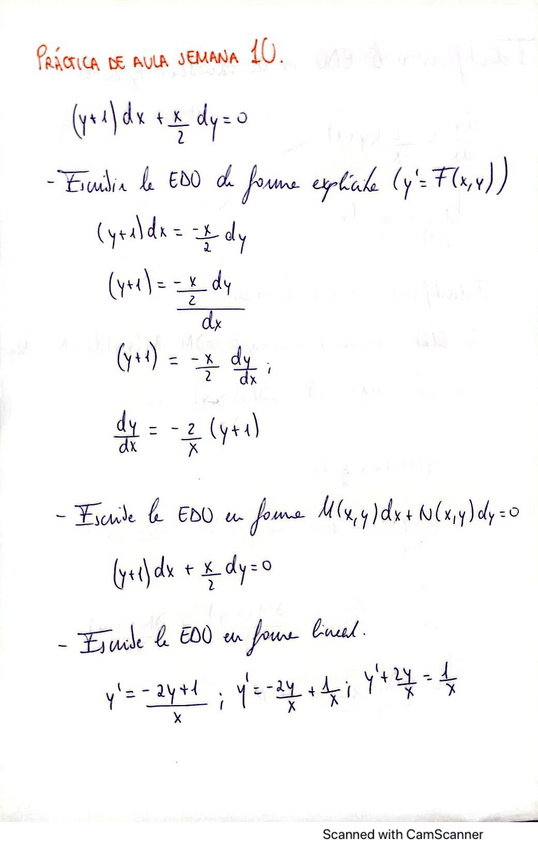 PRÁCTICA DE AULA SEMANA 10.
(y+1)dx + x/2 dy = 0
- Escribir la EDO de forma explícita (y' = F(x,y))
(y+1)dx = -x/2 dy
(y+1) = (-x/2 dy)/dx
(y+1) = -x/2 dy/dx ;
dy/dx = -2/x (y+1)
- Escribe la EDO en forma M(x,y)dx + N(x,y)dy = 0
(y+1)dx + x/2 dy = 0
- Escribe la EDO en forma lineal.
y' = (-2y+1)/x ; y' = -2y/x + 1/x ; y' + 2y/x = 1/x
Scanned with CamScanner